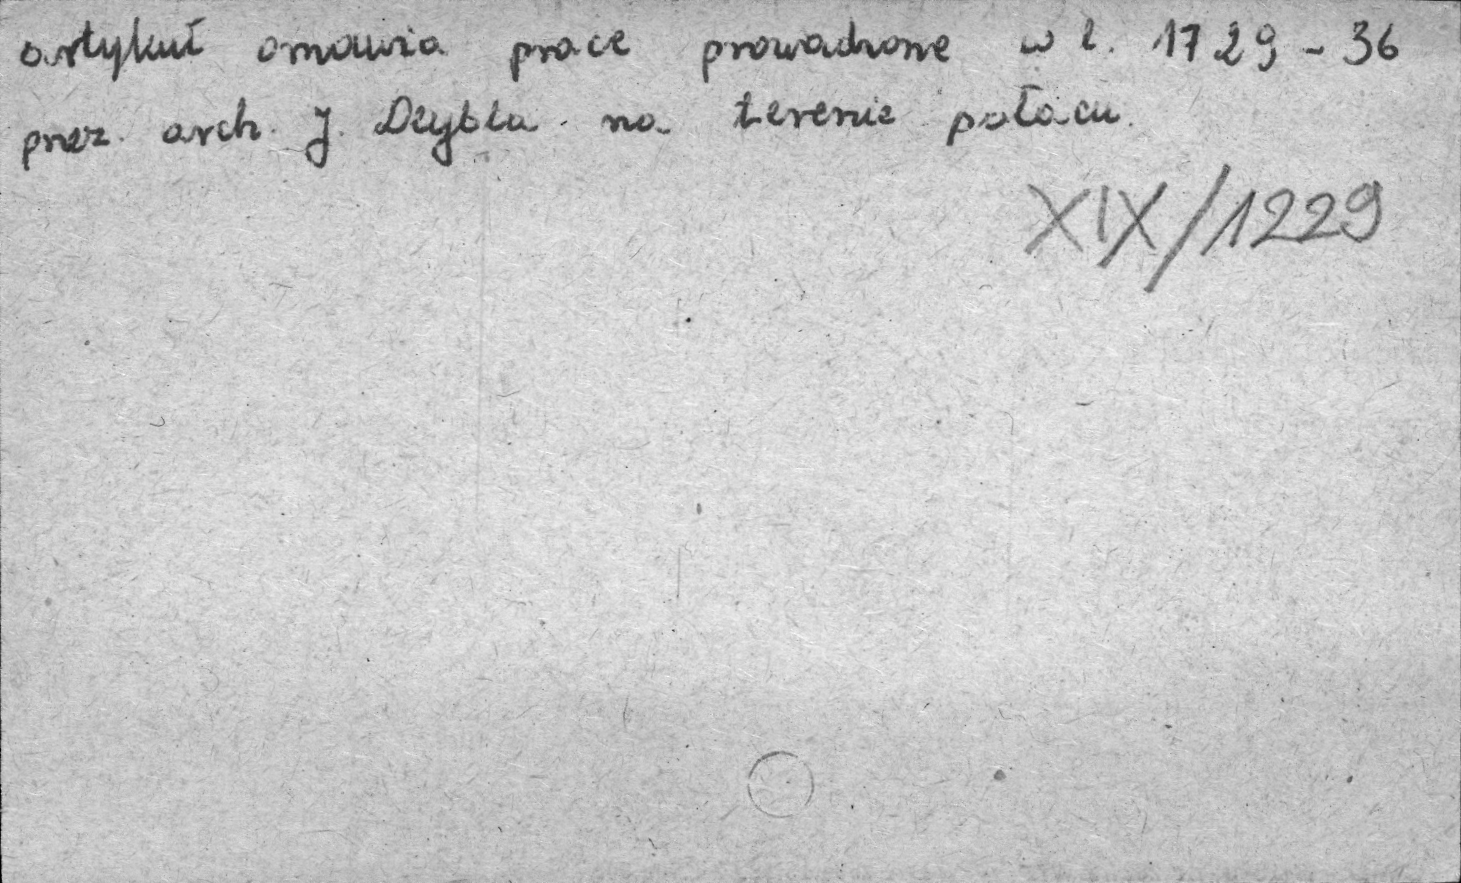 artykuł omawia prace prowadzone w l. 1729 - 36
przez arch. J. Deybla na terenie pałacu.
XIX/1229